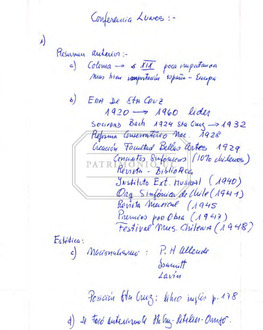 Conferencia Lunes:-
1)
Resumen anterior:-
a) Colonia → s XIX poca importancia
mas bien importación españa - Europa
b) Era de Sta Cruz
1920 → 1960 lider
Sociedad Bach 1924 Sta Cruz → 1932
Reforma Conservatorio Nac. 1928
Creación Facultad Bellas Artes 1929
Conciertos Sinfónicos (10% chilenos)
Revista - Biblioteca
Instituto Ext. Musical (1940)
Orq. Sinfónica de Chile (1941)
Revista Musical (1945
Premios por Obra (1947)
Festival Mus. Chilena (1948)
PATRIMONIO
Estética:
c) Nacionalismo: P. H Allende
Isamitt
Lavín
Posición Sta Cruz: libro inglés p. 178
d) Se tocó anteriormente